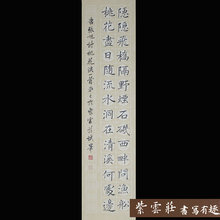 隱隱飛橋隔野煙石磯西畔問漁船
桃花盡日隨流水洞在清溪何處邊
唐張旭詩桃花溪一首
紫雲莊
書寫有趣